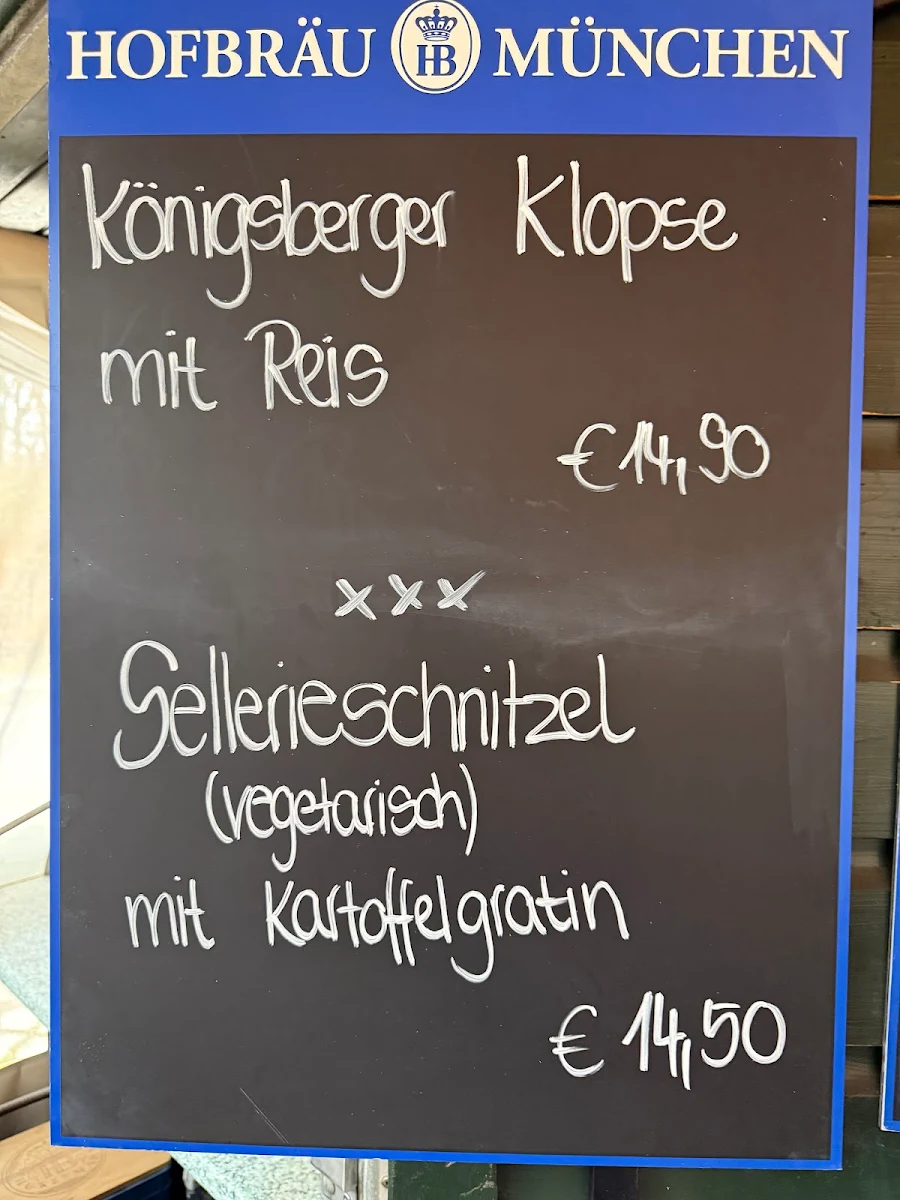 HOFBRÄU HB MÜNCHEN
Königsberger Klopse
mit Reis
€ 14,90
xxx
Sellerieschnitzel
(vegetarisch)
mit Kartoffelgratin
€ 14,50